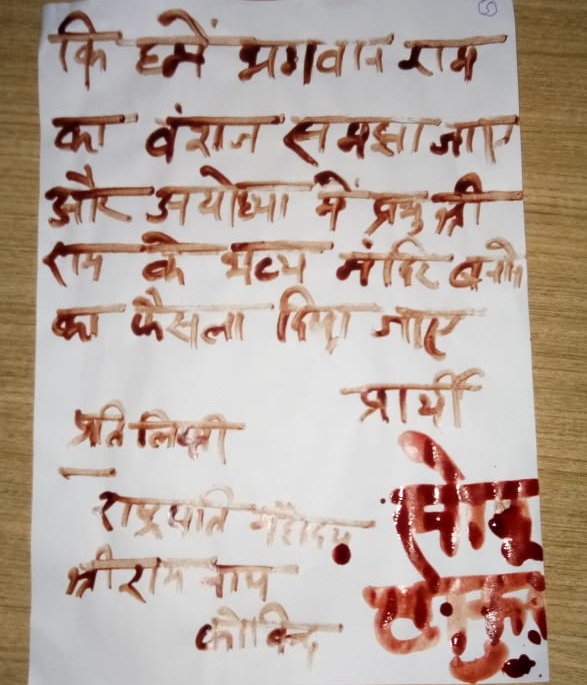 ५
कि हमें भगवान राम
का वंशज समझा जाए
और अयोध्या में प्रभु श्री
राम के भव्य मंदिर बनाने
का फैसला दिया जाए
प्रार्थी
प्रति लिपी
राष्ट्रपति महोदय
श्री राम नाथ
कोविन्द
ठाकुर